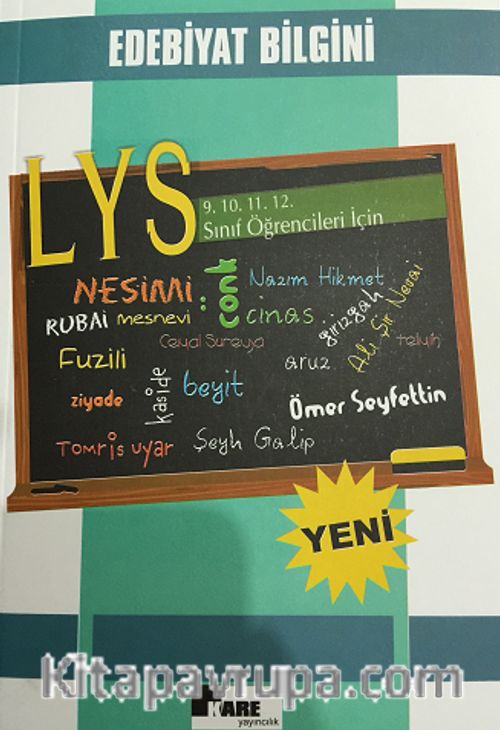 EDEBİYAT BİLGİNİ
LYS
9. 10. 11. 12.
Sınıf Öğrencileri İçin
NESİMİ
cönk
Nazım Hikmet
RUBAİ mesnevi
cinas
girizgah
Ali Şir Nevai
Cemal Süreya
telyih
Fuzili
aruz
ziyade
kaside
beyit
Ömer Seyfettin
Tomris uyar
Şeyh Galip
YENİ
kitapavrupa.com
KARE
yayıncılık